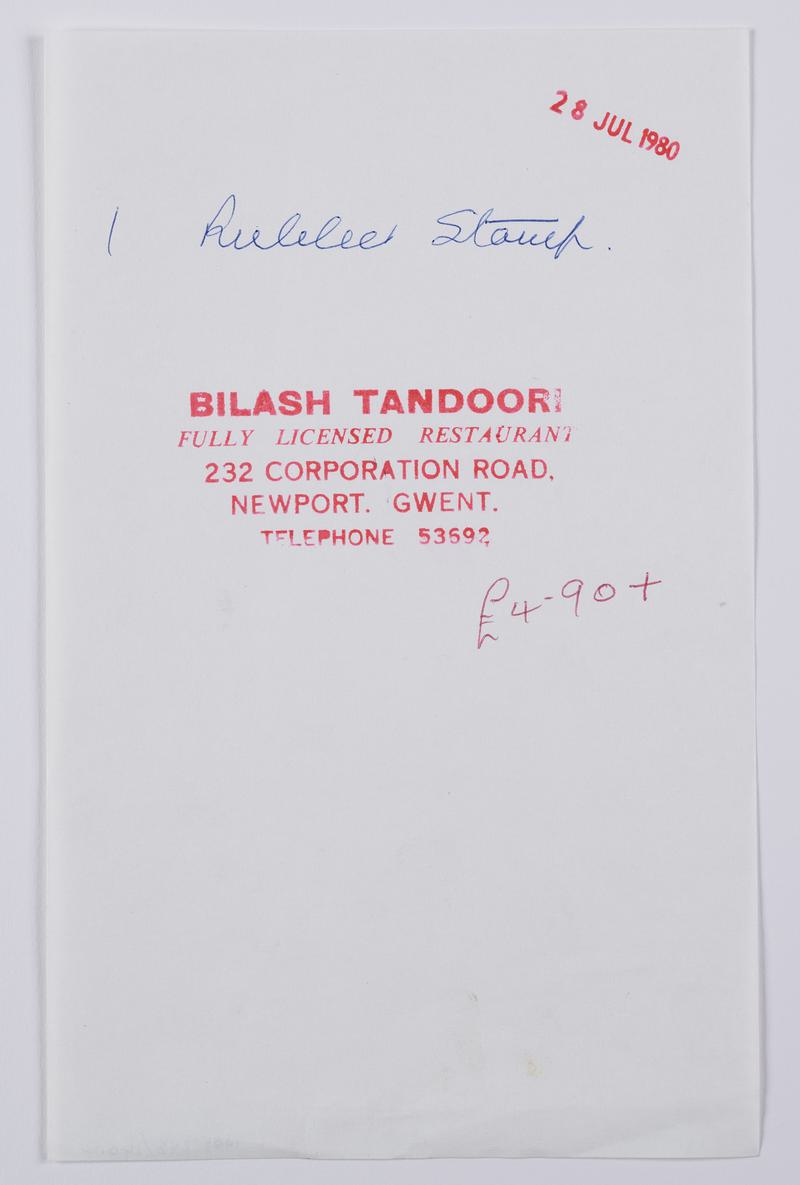 28 JUL 1980
1 Rubber Stamp.
BILASH TANDOORI
FULLY LICENSED RESTAURANT
232 CORPORATION ROAD,
NEWPORT. GWENT.
TELEPHONE 53692
£4-90+